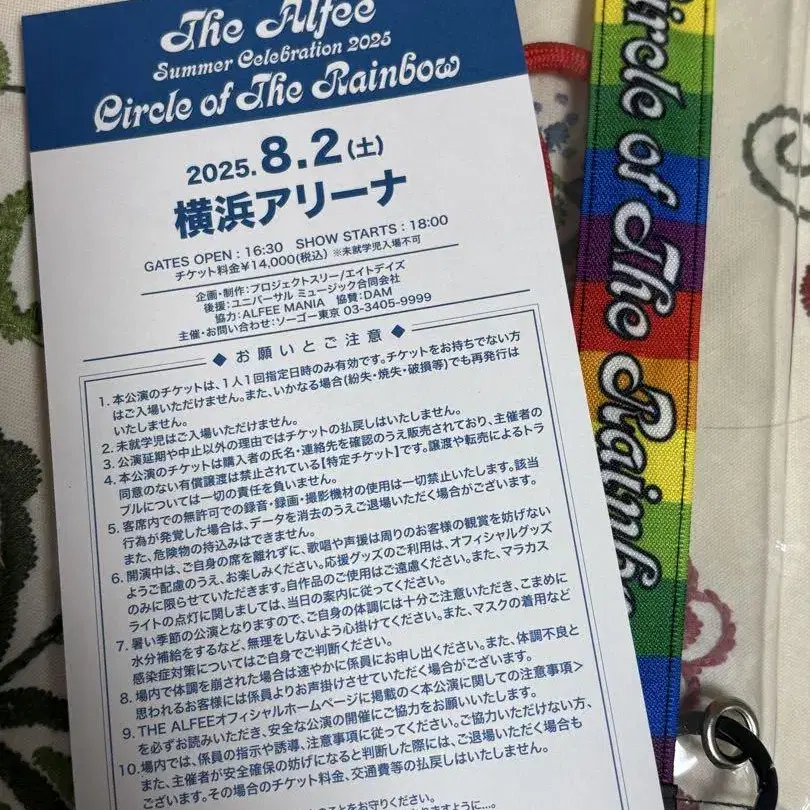 The Alfee
Summer Celebration 2025
Circle of The Rainbow
2025. 8.2 (土)
横浜アリーナ
GATES OPEN : 16:30 SHOW STARTS : 18:00
チケット料金¥14,000(税込) ※未就学児入場不可
企画・制作:プロジェクトスリー/エイトデイズ
後援:ユニバーサル ミュージック合同会社
協力:ALFEE MANIA 協賛:DAM
主催・お問い合わせ:ソーゴー東京 03-3405-9999
◆ お願いとご注意 ◆
1. 本公演のチケットは、1人1回指定日時のみ有効です。チケットをお持ちでない方
はご入場いただけません。また、いかなる場合(紛失・焼失・破損等)でも再発行は
いたしません。
2. 未就学児はご入場いただけません。
3. 公演延期や中止以外の理由ではチケットの払戻しはいたしません。
4. 本公演のチケットは購入者の氏名・連絡先を確認のうえ販売されており、主催者の
同意のない有償譲渡は禁止されている【特定チケット】です。譲渡や転売によるトラ
ブルについては一切の責任を負いません。
5. 客席内での無許可での録音・録画・撮影機材の使用は一切禁止いたします。該当
行為が発覚した場合は、データを消去のうえご退場いただく場合がございます。
また、危険物の持込みはできません。
6. 開演中は、ご自身の席を離れずに、歌唱や声援は周りのお客様の観賞を妨げない
ようご配慮のうえ、お楽しみください。応援グッズのご利用は、オフィシャルグッズ
のみに限らせていただきます。自作品のご使用はご遠慮ください。また、マラカス
ライトの点灯に関しましては、当日の案内に従ってください。
7. 暑い季節の公演となりますので、ご自身の体調には十分ご注意いただき、こまめに
水分補給をするなど、無理をしないよう心掛けてください。また、マスクの着用など
感染症対策についてはご自身でご判断ください。
8. 場内で体調を崩された場合は速やかに係員にお申し出ください。また、体調不良と
思われるお客様には係員よりお声掛けさせていただく場合がございます。
9. THE ALFEEオフィシャルホームページに掲載の<本公演に関しての注意事項>
を必ずお読みいただき、安全な公演の開催にご協力をお願いいたします。
10. 場内では、係員の指示や誘導、注意事項に従ってください。ご協力いただけない方、
また、主催者が安全確保の妨げになると判断した際には、ご退場いただく場合も
ございます。その場合のチケット料金、交通費等の払戻しはいたしません。
ことをお守りください。
りますように…。
Circle of The Rainbo